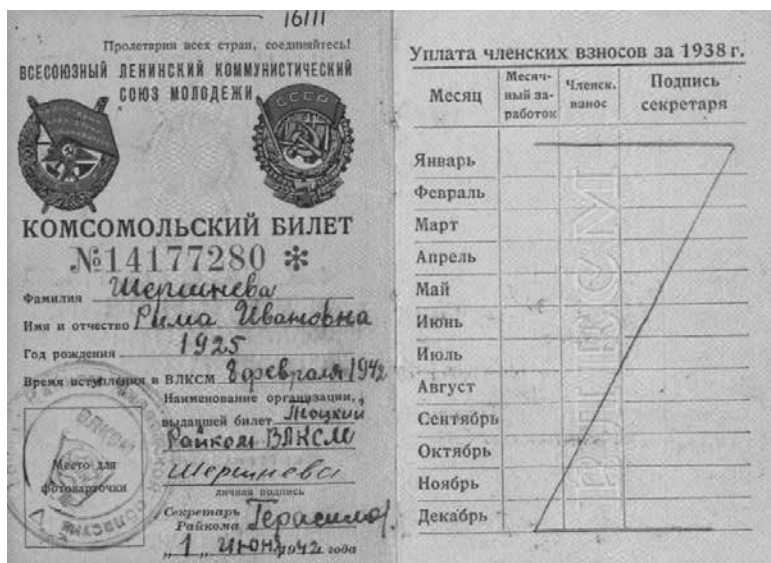 16/III
Пролетарии всех стран, соединяйтесь!
ВСЕСОЮЗНЫЙ ЛЕНИНСКИЙ КОММУНИСТИЧЕСКИЙ
СОЮЗ МОЛОДЕЖИ
СССР
КОМСОМОЛЬСКИЙ БИЛЕТ
№14177280 *
Фамилия Шершнева
Имя и отчество Рима Ивановна
Год рождения 1925
Время вступления в ВЛКСМ 8 февраля 1942
Наименование организации,
выдавшей билет Тоцкий
Райком ВЛКСМ
Место для
фотокарточки
Шершнева
личная подпись
Секретарь
Райкома Герасимов
„1„ июня 1942 года
Уплата членских взносов за 1938 г.
Месяц
Месяч-
ный за-
работок
Членск.
взнос
Подпись
секретаря
Январь
Февраль
Март
Апрель
Май
Июнь
Июль
Август
Сентябрь
Октябрь
Ноябрь
Декабрь
ВЛКСМ